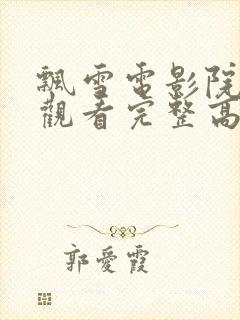 飄雪電影院
觀看完整高
郭愛霞